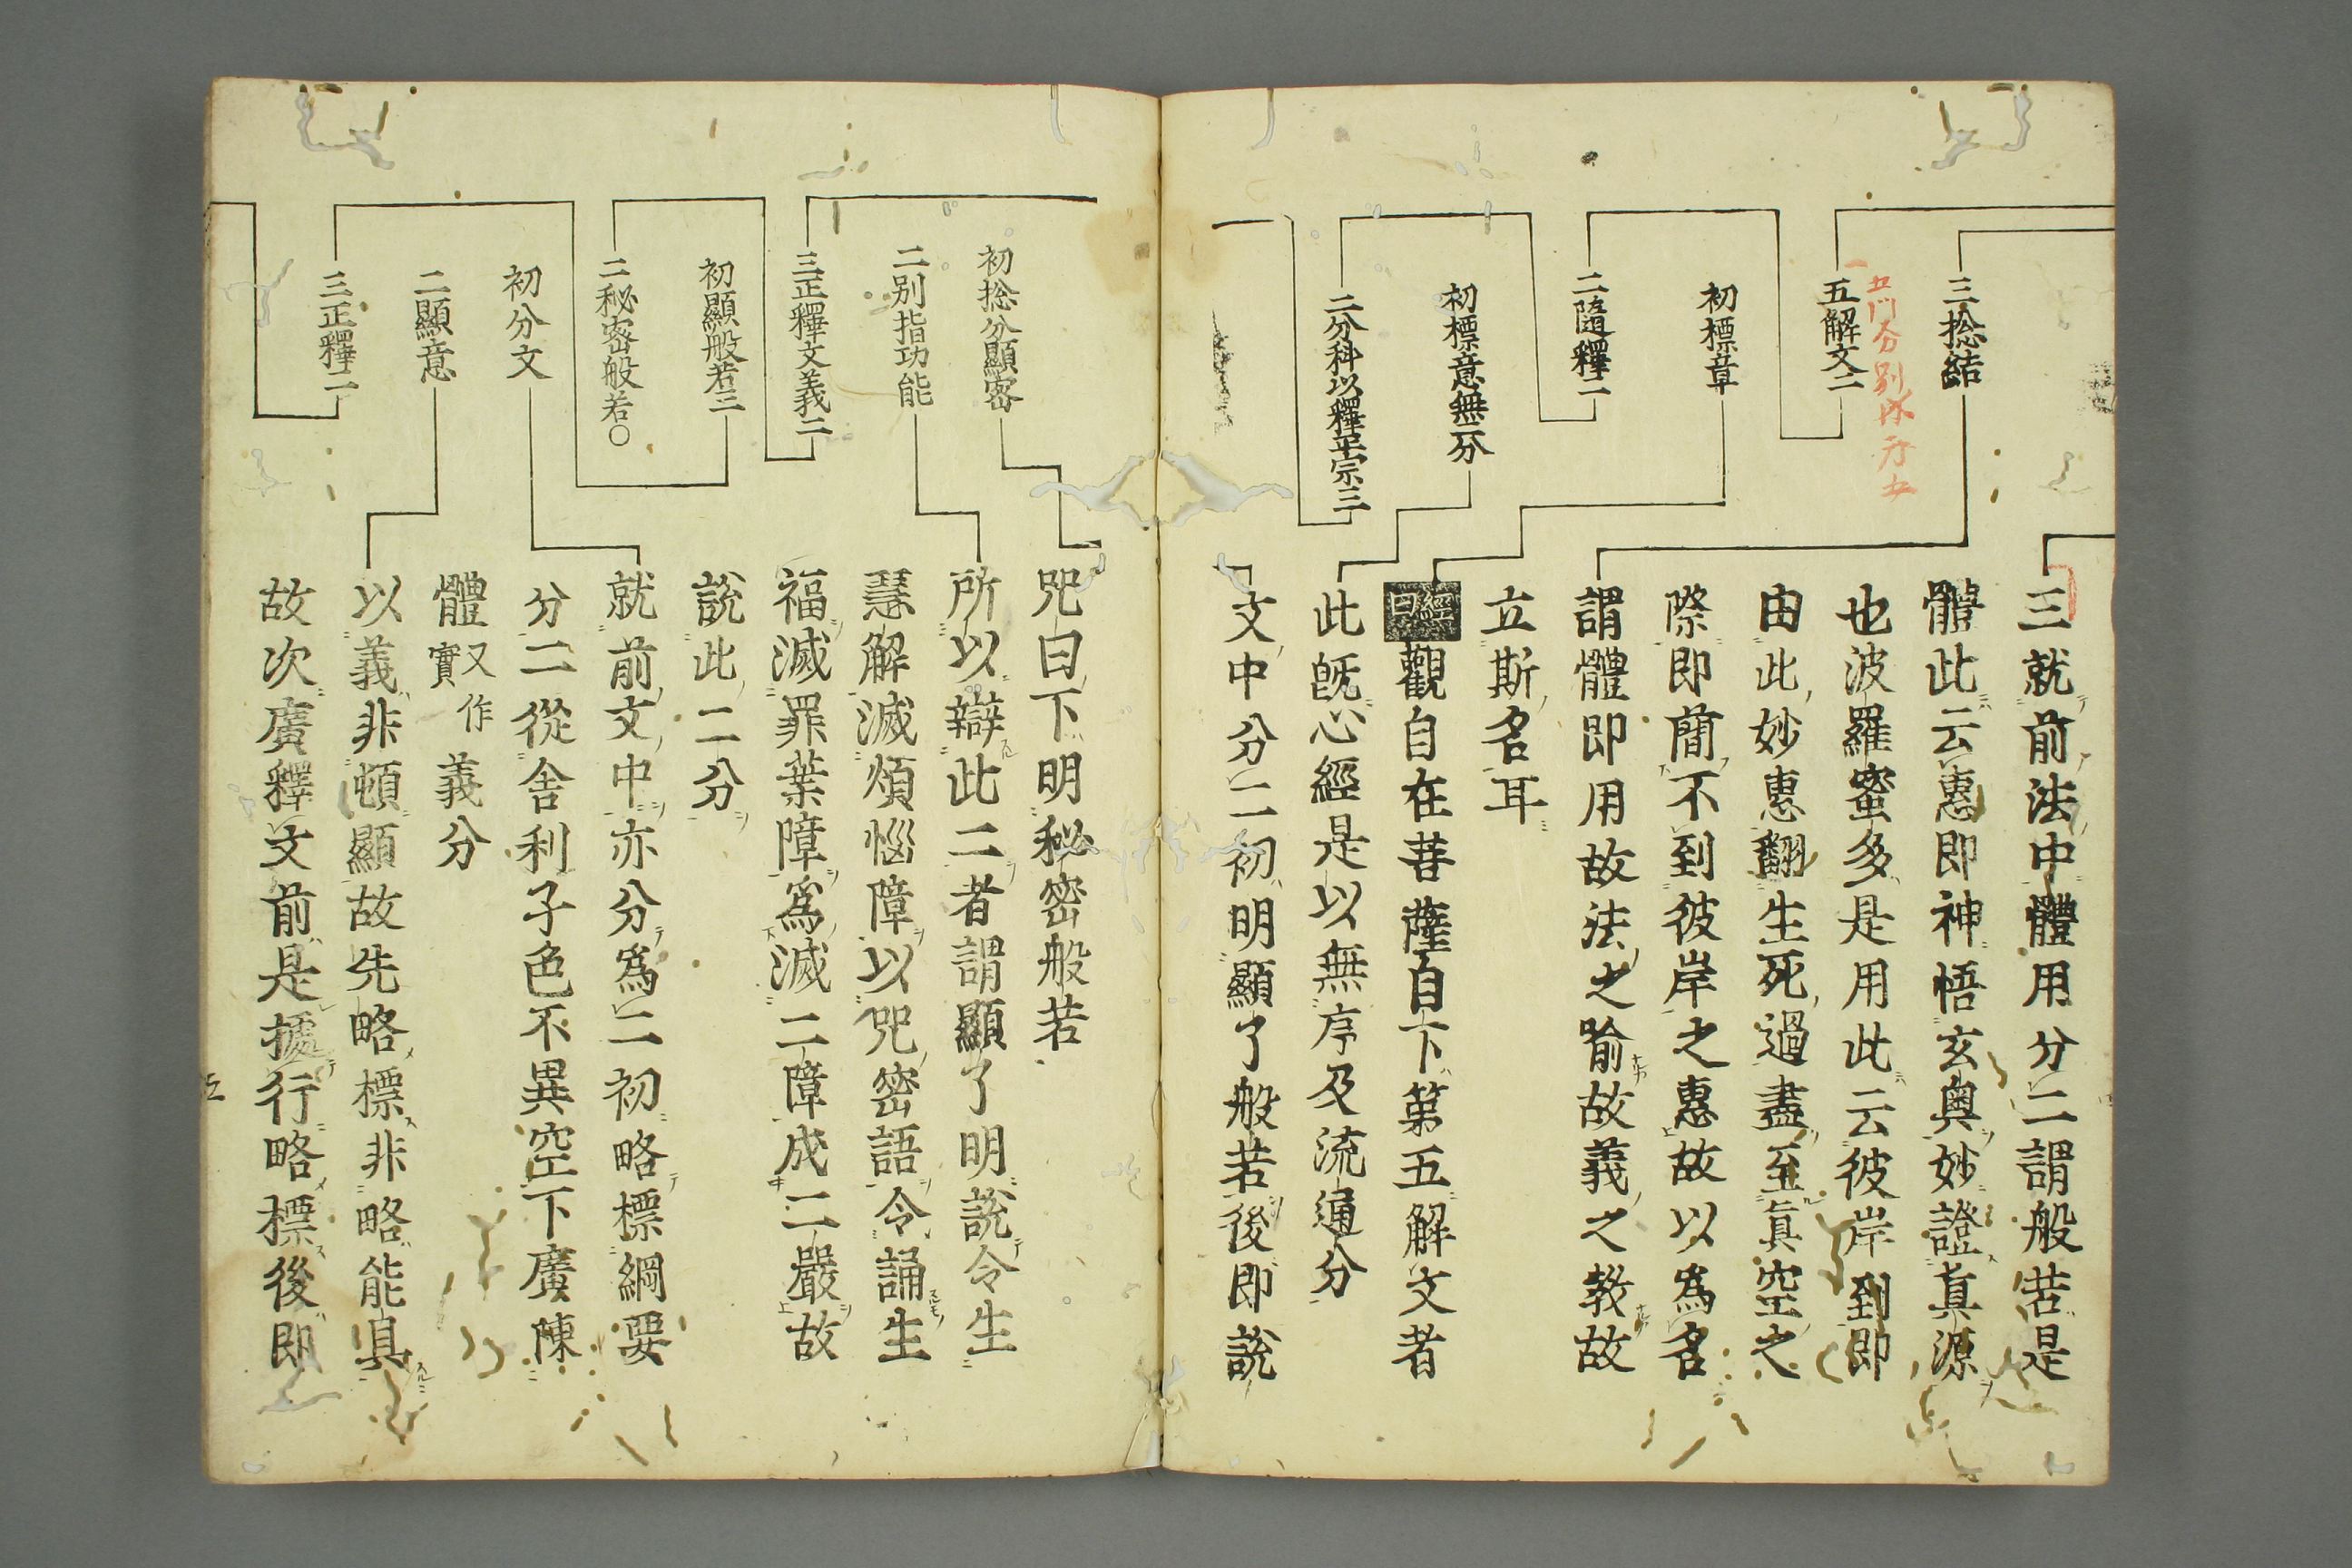 三捴結
五門分別
五解文二
初標章
二隨釋二
初標意無二分
二分科以釋正宗三
三就前法中體用分二謂般若是
體此云惠即神悟玄奧妙證真源
也波羅蜜多是用此云彼岸到即
由此妙惠翻生死過盡至真空之
際即蕳不到彼岸之惠故以為名
謂體即用故法之喻故義之教故
立斯名耳
經曰觀自在菩薩自下第五解文者
此既心經是以無序及流通分
文中分二初明顯了般若後即說
初捴分顯密
二別指功能
三正釋文義二
初顯般若三
二秘密般若〇
初分文
二顯意
三正釋二
咒曰下明秘密般若
所以辯此二者謂顯了明說令生
慧解滅煩惱障以咒密語令誦生
福滅罪業障為滅二障成二嚴故
說此二分
就前文中亦分為二初略標綱要
分二從舍利子色不異空下廣陳
體又作實義分
以義非頓顯故先略標非略能具
故次廣釋文前是據行略標後即
五